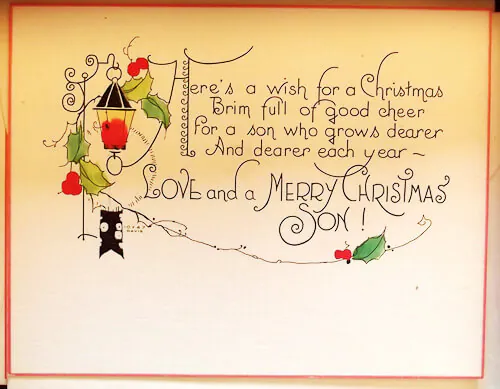 Here's a wish for a Christmas
Brim full of good cheer
For a son who grows dearer
And dearer each year ~
LOVE and a MERRY CHRISTMAS
SON!